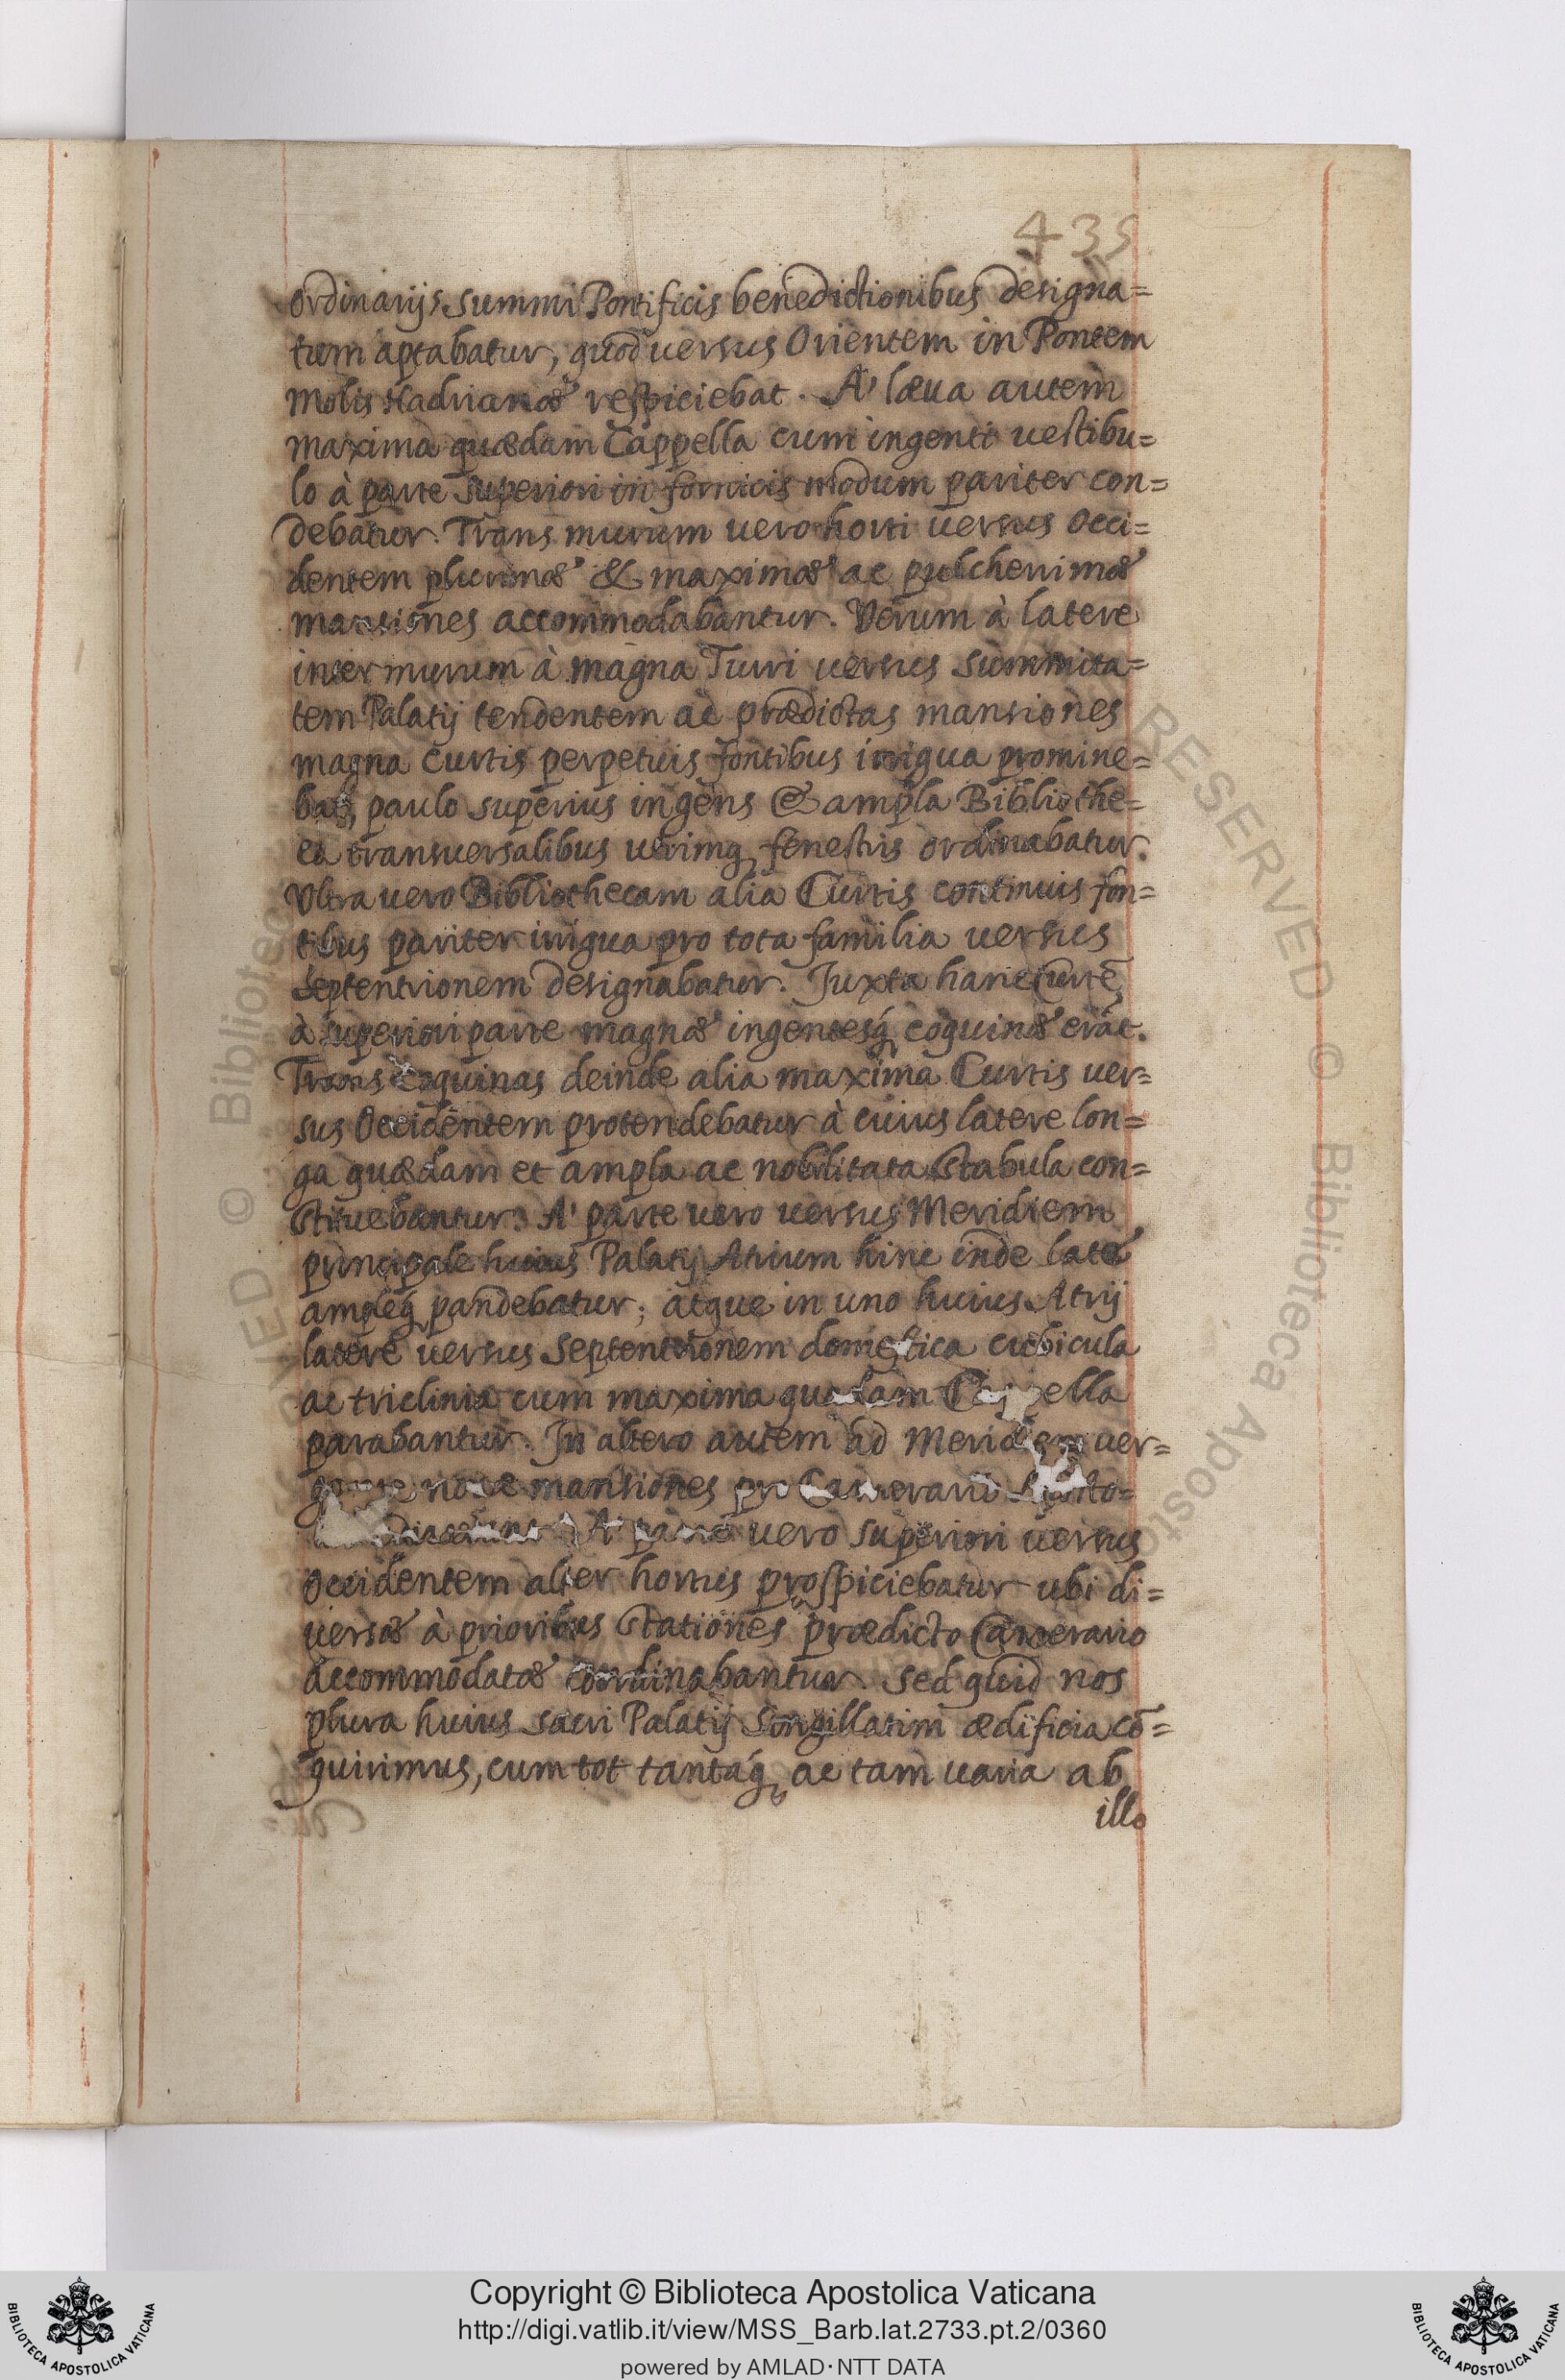 435
ordinarijs summi Pontificis benedictionibus designa=
tum aptabatur, quod uersus Orientem in Pontem
Molis Hadrianæ respiciebat. A' læua autem
maxima quædam Cappella cum ingenti uestibu=
lo à parte superiori in fornicis modum pariter con=
debatur. Trans murum uero horti uersus Occi=
dentem plurimæ & maximæ ac pulcherrimæ
mansiones accommodabantur. Verum à latere
inter murum à magna Turri uersus summita=
tem Palatij tendentem ac prædictas mansiones
magna Curtis perpetuis fontibus irrigua promine=
bat, paulo superius ingens & ampla Bibliothe=
ca transuersalibus utrimq fenestris ordinabatur.
Vltra uero Bibliothecam alia Curtis continuis fon=
tibus pariter irrigua pro tota familia uersus
Septentrionem designabatur. Juxta hanc Curtē
à superiori parte magnæ ingentesq́ coquinæ erāt.
Trans coquinas deinde alia maxima Curtis uer=
sus Occidentem protendebatur à cuius latere lon=
ga quædam et ampla ac nobilitata stabula con=
stituebantur. A' parte uero uersus Meridiem
principale huius Palatij Atrium hinc inde latè
ampleq́ pandebatur; atque in uno huius Atrij
latere uersus Septentrionem domestica cubicula
ac triclinia cum maxima quadam Cappella
parabantur. In altero autem ad Meridiem uer=
gente nouæ mansiones pro Camerario
A' parte uero superiori uersus
Occidentem alter hortus prospiciebatur ubi di=
uersæ à prioribus stationes prædicto Camerario
accommodatæ coordinabantur. Sed quid nos
plura huius sacri Palatij singillatim ædificia cō=
quirimus, cum tot tantaq́ ac tam uaria ab
illo
© Biblioteca Apostolica Vaticana
RESERVED © Biblioteca Apostolica
Copyright © Biblioteca Apostolica Vaticana
http://digi.vatlib.it/view/MSS_Barb.lat.2733.pt.2/0360
powered by AMLAD·NTT DATA
BIBLIOTECA APOSTOLICA VATICANA
BIBLIOTECA APOSTOLICA VATICANA